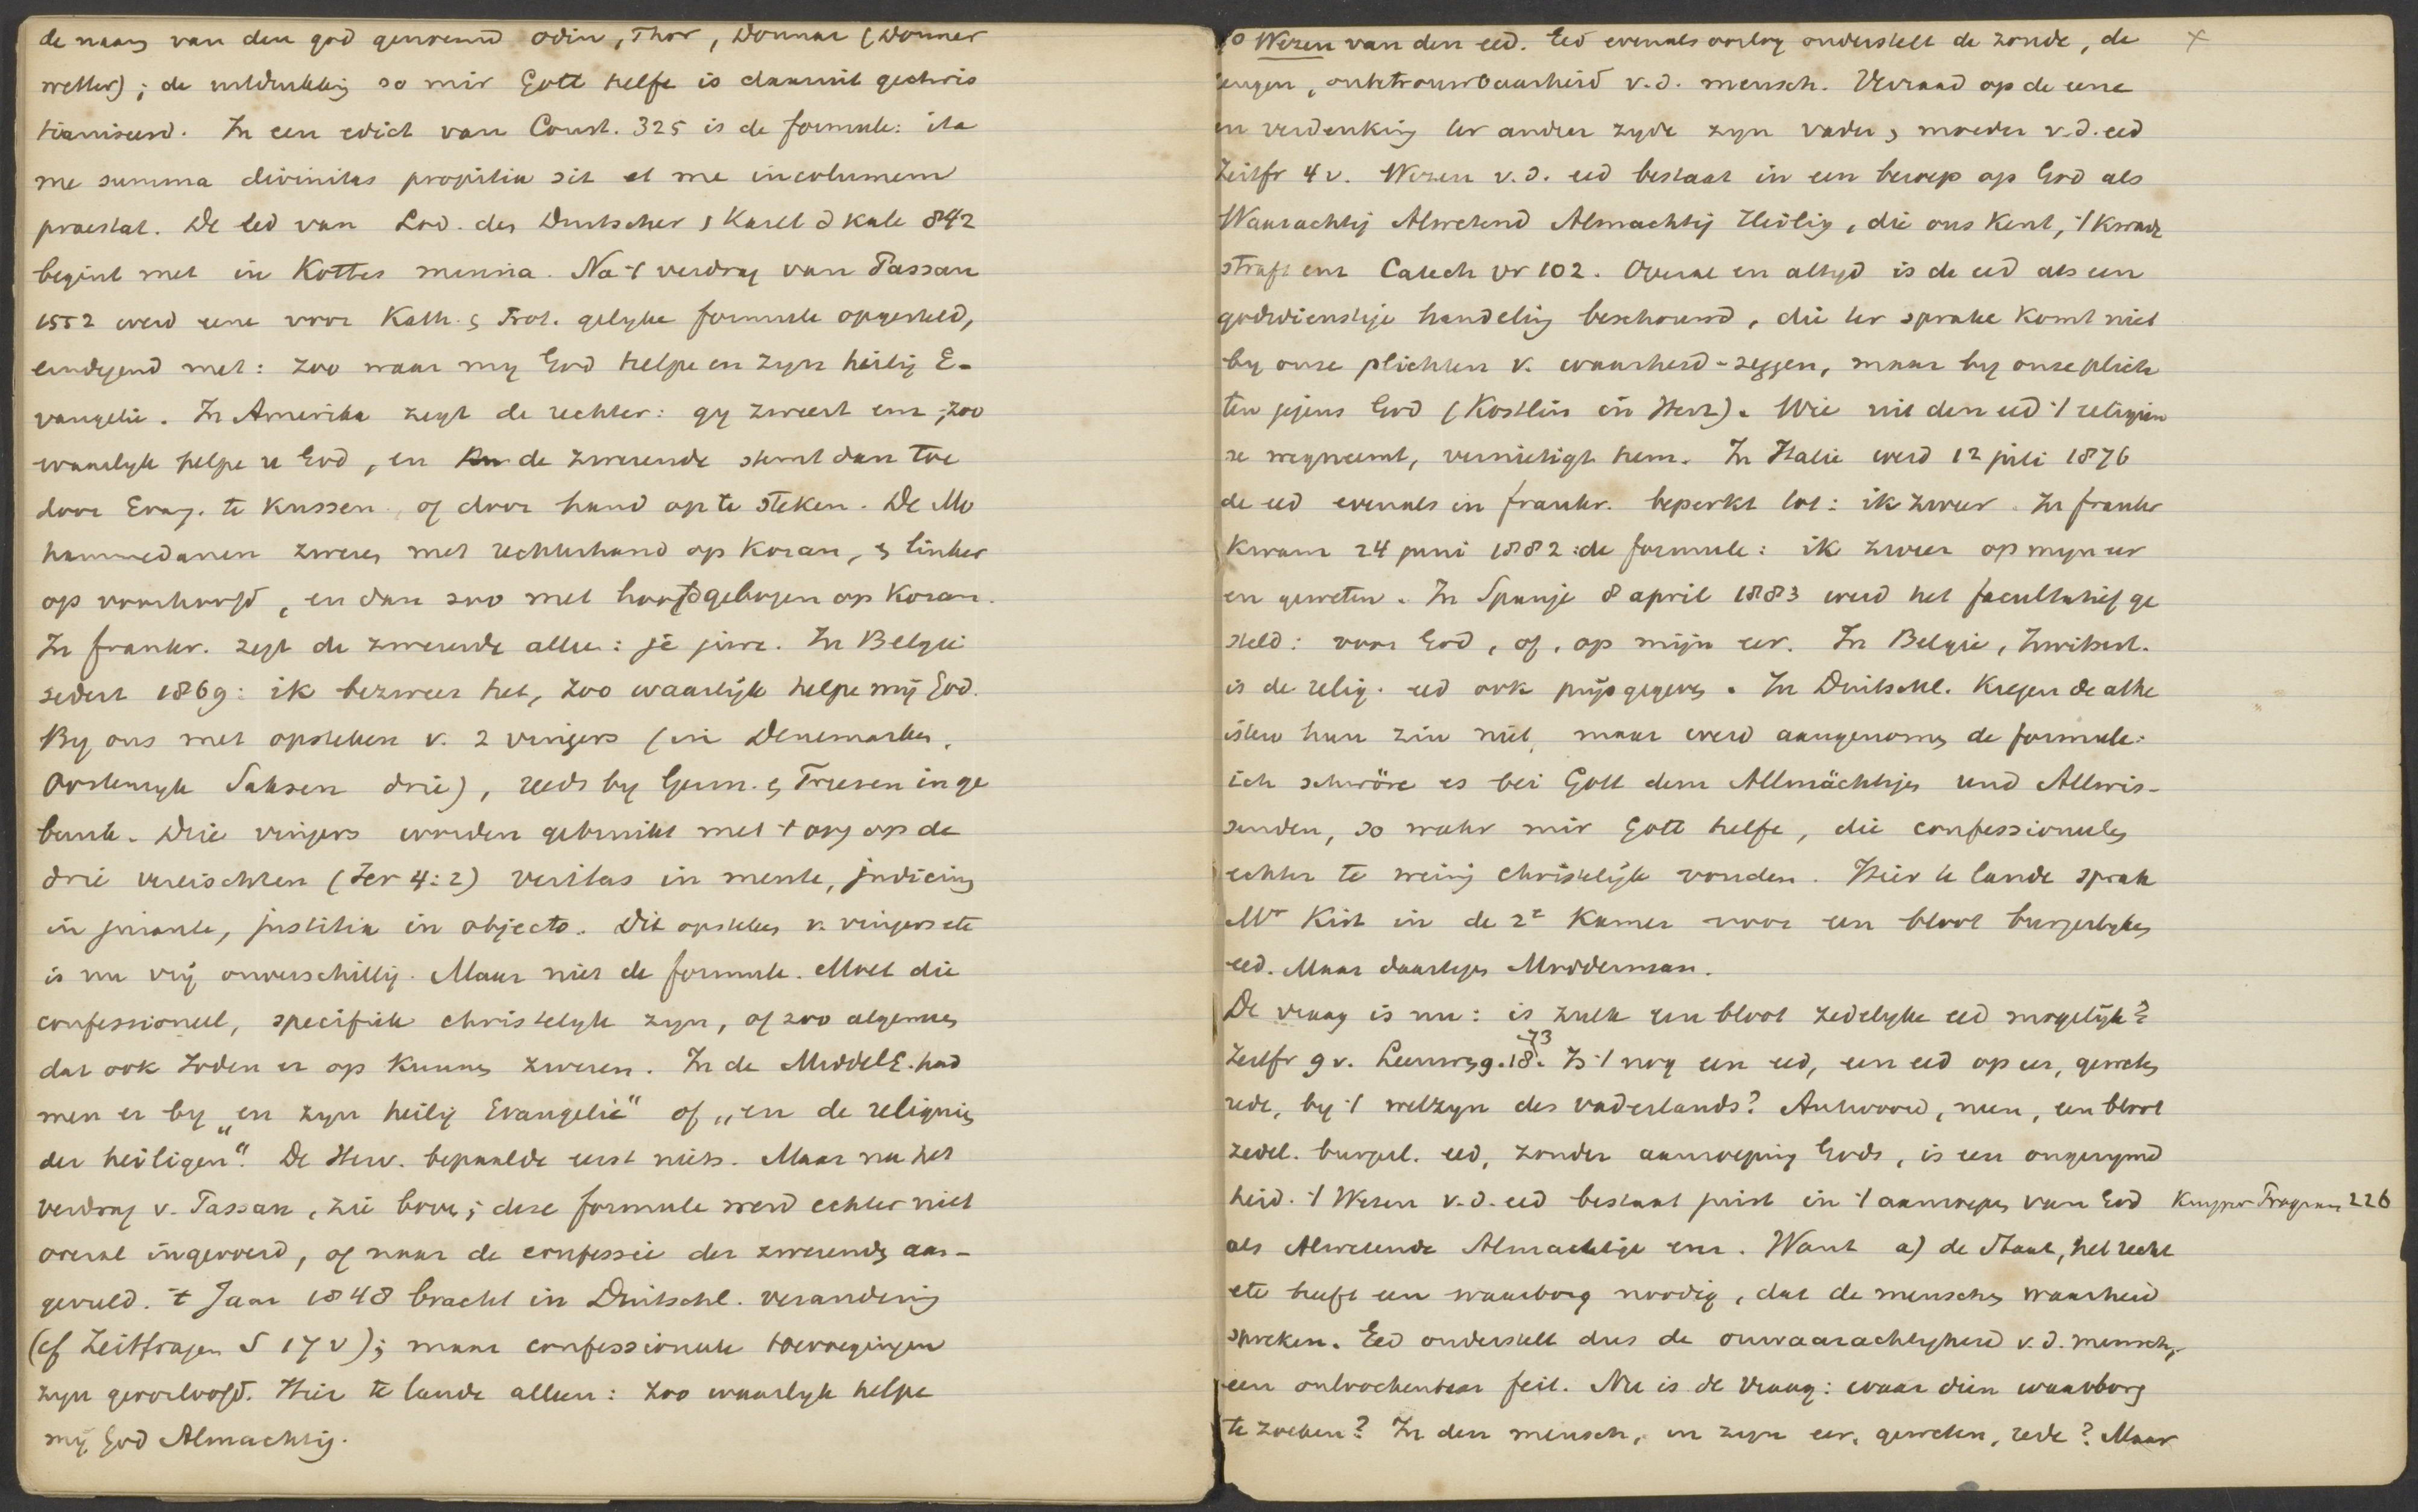 de naam van den god genoemd Odin, Thor, Donnar (Donner
wetter); de uitdrukking so mir Gott helfe is daaruit gechris
tianiseerd. In een edict van Const. 325 is de formule: ita
me summa divinitas propitia sit et me incolumem
praestat. De eed van Lod. den Duitscher & Karel d Kale 842
begint met in Kottes minna. Na 't verdrag van Passau
1552 werd eene voor Kath. & Prot. gelyke formule opgesteld,
eindigend met: zoo waar my God helpe en zyn heilig E-
vangelie. In Amerika zegt de rechter: gy zweert enz, zoo
waarlyk helpe u God, en de zwerende stemt dan toe
door Evang. te kussen, of door hand op te steken. De Mo
hammedanen zweren met rechterhand op Koran, & linker
op voorhoofd, en dan zoo met hoofd gebogen op Koran.
In frankr. zegt de zwerende alleen: je jure. In Belgie
sedert 1869: ik bezweer het, zoo waarlijk helpe mij God.
By ons met opsteken v. 2 vingers (in Denemarken,
Oostenryk Saksen drie), reeds by Germ. & Friesen in ge
bruik. Drie vingers worden gebruikt met 't oog op de
drie vereischten (Jer 4:2) veritas in mente, judicium
in jurante, justitia in objecto. Dit opsteken v. vingers etc
is nu vrij onverschillig. Maar niet de formule. Moet die
confessioneel, specifiek christelyk zyn, of zoo algemeen
dat ook Joden er op kunnen zweren. In de MiddelE. had
men er by „en zyn heilig Evangelie" of „en de reliquien
der heiligen". De Herv. bepaalde eerst niets. Maar na het
verdrag v. Passau, zie boven; deze formule werd echter niet
overal ingevoerd, of naar de confessie der zwerenden aan-
gevuld. 't Jaar 1848 bracht in Duitschl. verandering
(cf Zeitfragen S 17 v); maar confessioneele toevoegingen
zyn geoorloofd. Hier te lande alleen: zoo waarlyk helpe
mij God Almachtig.
Wezen van den eed. Eed evenals oorlog onderstelt de zonde, de ×
leugen, onbetrouwbaarheid v.d. mensch. Verraad op de eene
en verdenking ter andere zyde zyn vader & moeder v.d. eed
Zeitfr 4 v. Wezen v.d. eed bestaat in een beroep op God als
Waarachtig Alwetend Almachtig Heilig, die ons kent, 't kwade
straft enz Catech vr 102. Overal en altyd is de eed als een
godsdienstige handeling beschouwd, die ter sprake komt niet
by onze plichten v. waarheid-zeggen, maar by onze plich
ten jegens God (Kostlin in Herz). Wie uit den eed 't religieu
se wegneemt, vernietigt hem. In Italie werd 12 juli 1876
de eed evenals in frankr. beperkt tot: ik zweer. In frankr
kwam 24 juni 1882 de formule: ik zweer op myn eer
en geweten. In Spanje 8 april 1883 werd het facultatief ge
steld: voor God, of, op mijn eer. In Belgie, Zwitserl.
is de relig. eed ook prijsgegeven. In Duitschl. kregen de athe
isten hun zin niet, maar werd aangenomen de formule:
ich schwöre es bei Gott dem Allmächtigen und Allwis-
senden, so wahr mir Gott helfe, die confessioneelen
echter te weinig christelijk vonden. Hier te lande sprak
Mr Kist in de 2e Kamer voor een bloot burgerlyken
eed. Maar daartegen Modderman.
De vraag is nu: is zulk een bloot zedelyke eed mogelijk?
Zeitfr 9 v. 18.73 Is 't nog een eed, een eed op eer, geweten
rede, by 't welzyn des vaderlands? Antwoord, neen, een bloot
zedel. burgerl. eed, zonder aanroeping Gods, is een ongerymd
heid. 't Wezen v.d. eed bestaat juist in 't aanroepen van God Kuyper Program 226
als Alwetende Almachtige enz. Want a) de Staat, het recht
etc heeft een waarborg noodig, dat de menschen waarheid
spreken. Eed onderstelt dus de onwaarachtigheid v.d. mensch,
een onloochenbaar feit. Nu is de vraag: waar dien waarborg
te zoeken? In den mensch, in zyn eer, geweten, rede? Maar